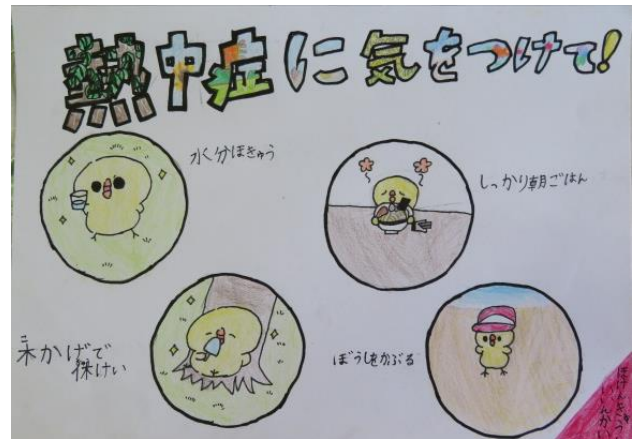 熱中症に気をつけて!
水分ほきゅう
しっかり朝ごはん
木かげで
休けい
ぼうしをかぶる